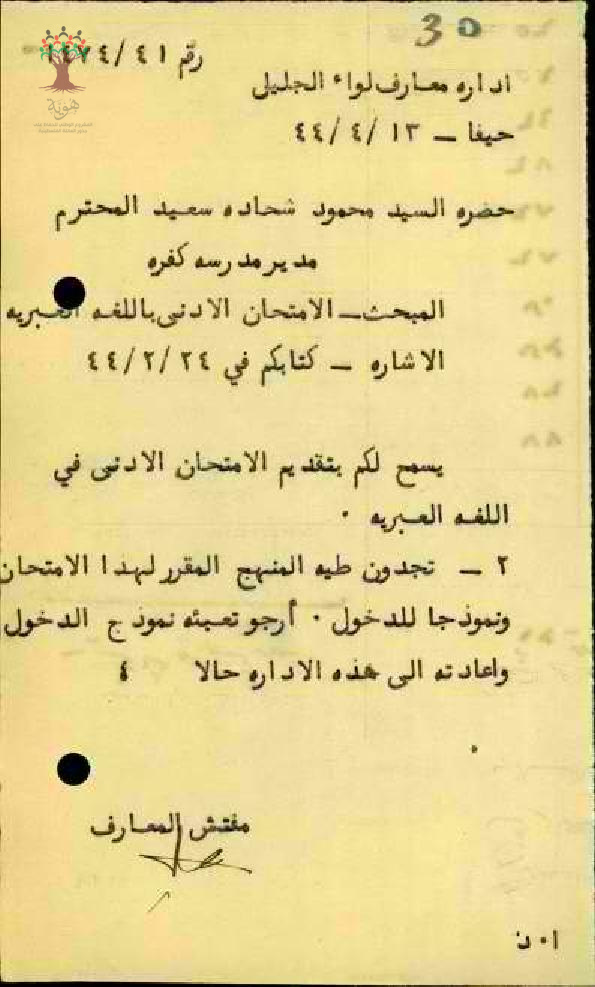 30
رقم ٤١/
اداره معارف لواء الجليل
حيفا – ١٣/٤/٤٤
هوية
حضره السيد محمود شحاده سعيد المحترم
مدير مدرسه كفره
المبحث – الامتحان الادنى باللغه العبريه
الاشاره – كتابكم في ٤٤/٢/٢٤
يسمح لكم بتقديم الامتحان الادنى في
اللغه العبريه .
٢ – تجدون طيه المنهج المقرر لهذا الامتحان
ونموذجا للدخول . أرجو تعبئه نموذج الدخول
واعادته الى هذه الاداره حالا ٤
مفتش المعارف
ا.ن